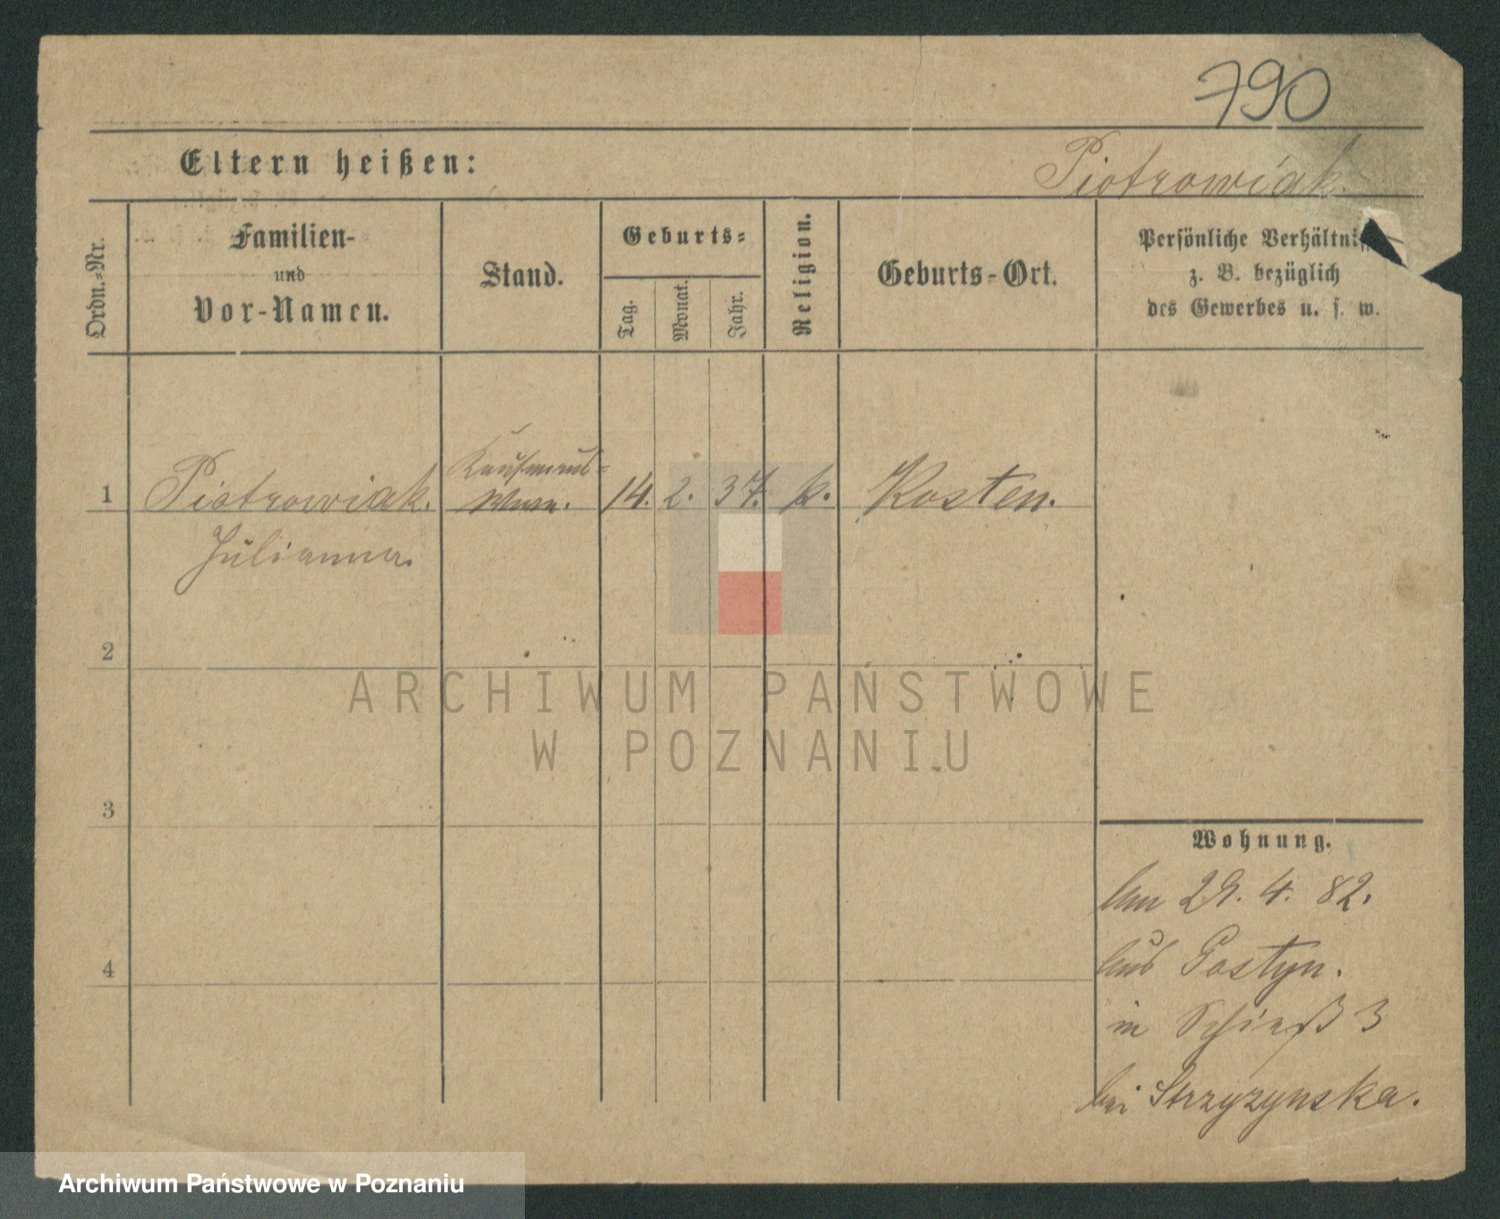 790
Eltern heißen:
Piotrowiak.
Ordn.-Nr.
Familien-
und
Vor-Namen.
Stand.
Geburts-
Tag.
Monat.
Jahr.
Religion.
Geburts-Ort.
Persönliche Verhältnis
z. B. bezüglich
des Gewerbes u. s. w.
1 Piotrowiak. 14. 2. 37. k. Kosten.
Julianna.
2
3
4
Wohnung.
Am 29. 4. 82.
aus Gostyn.
in Schieß 3
bei Strzyzynska.
ARCHIWUM PAŃSTWOWE
W POZNANIU
Archiwum Państwowe w Poznaniu